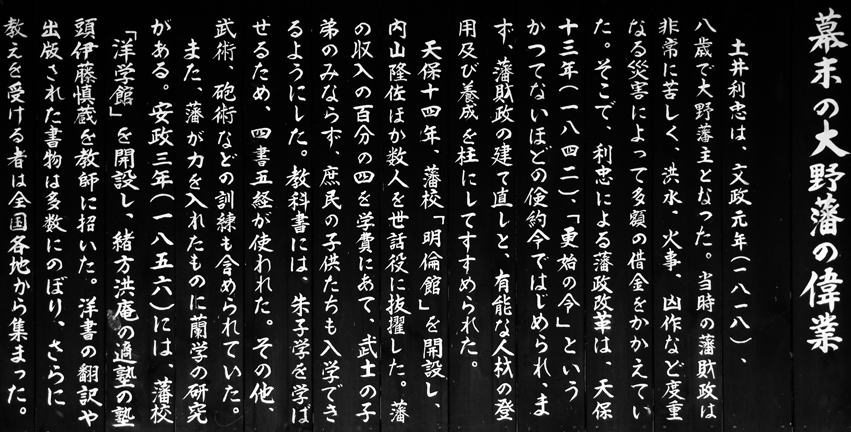 幕末の大野藩の偉業
土井利忠は、文政元年(一八一八)、
八歳で大野藩主となった。当時の藩財政は
非常に苦しく、洪水、火事、凶作など度重
なる災害によって多額の借金をかかえてい
た。そこで、利忠による藩政改革は、天保
十三年(一八四二)、「更始の令」という
かつてないほどの倹約令ではじめられ、ま
ず、藩財政の建て直しと、有能な人材の登
用及び養成を柱にしてすすめられた。
天保十四年、藩校「明倫館」を開設し、
内山隆佐ほか数人を世話役に抜擢した。藩
の収入の百分の四を学費にあて、武士の子
弟のみならず、庶民の子供たちも入学でき
るようにした。教科書には、朱子学を学ば
せるため、四書五経が使われた。その他、
武術、砲術などの訓練も含められていた。
また、藩が力を入れたものに蘭学の研究
がある。安政三年(一八五六)には、藩校
「洋学館」を開設し、緒方洪庵の適塾の塾
頭伊藤慎蔵を教師に招いた。洋書の翻訳や
出版された書物は多数にのぼり、さらに
教えを受ける者は全国各地から集まった。